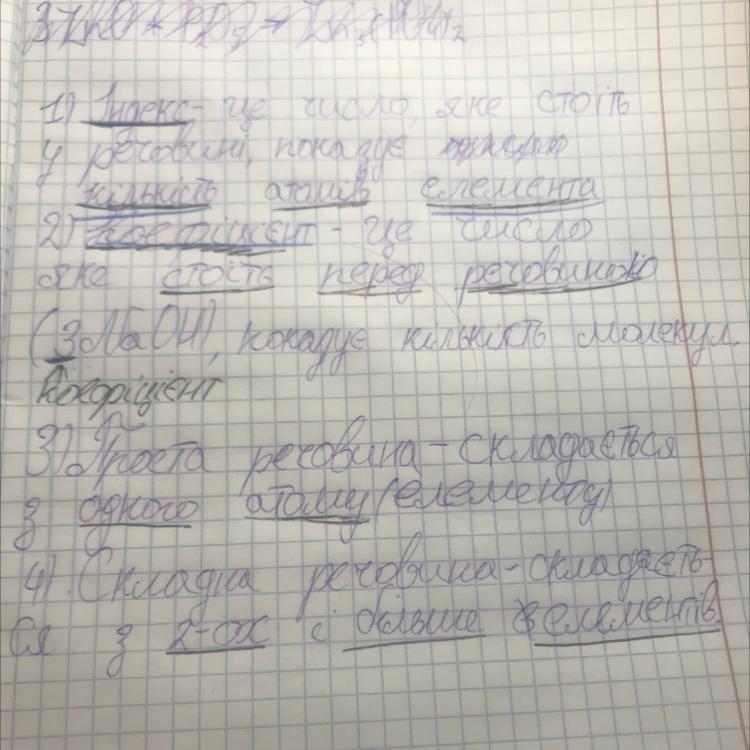 1) Індекс - це число, яке стоїть
у речовині, показує
кількість атомів елемента
2) Коефіцієнт - це число
яке стоїть перед речовиною
(3NaOH), показує кількість молекул.
Коефіцієнт
3) Проста речовина - складається
з одного атому (елементу)
4). Складна речовина - складаєть-
ся з 2-ох і більше елементів